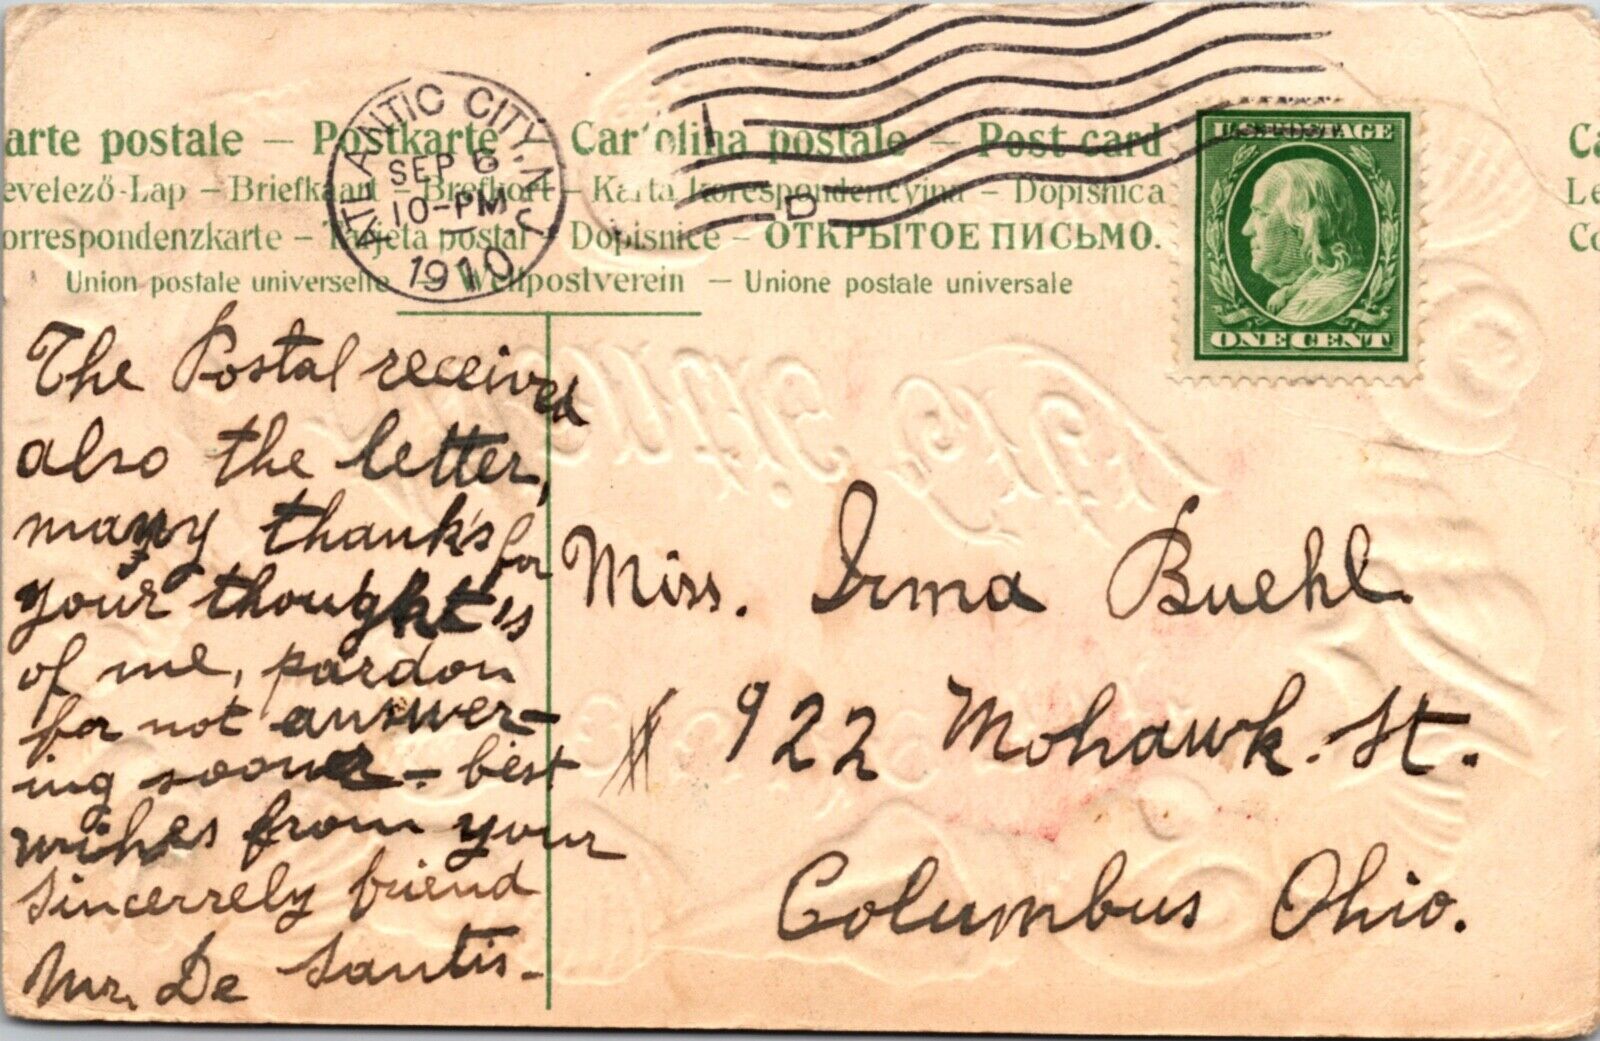 ATLANTIC CITY, N.J.
SEP 6
10-PM
1910
D
arte postale – Postkarte – Cartolina postale – Post card
evelező-Lap – Briefkaart – Brefkort – Karta korespondencyjna – Dopisnica
orrespondenzkarte – Tarjeta postal – Dopisnice – ОТКРЫТОЕ ПИСЬМО.
Union postale universelle – Weltpostverein – Unione postale universale
Ca
Le
Co
U.S. POSTAGE
ONE CENT
The Postal received
also the letter,
many thank's for
your thought's
of me, pardon
for not answer-
ing sooner - best
wishes from your
Sincerrely friend
Mr. De Santis-
Miss. Irma Buehl.
# 922 Mohawk. St.
Columbus Ohio.